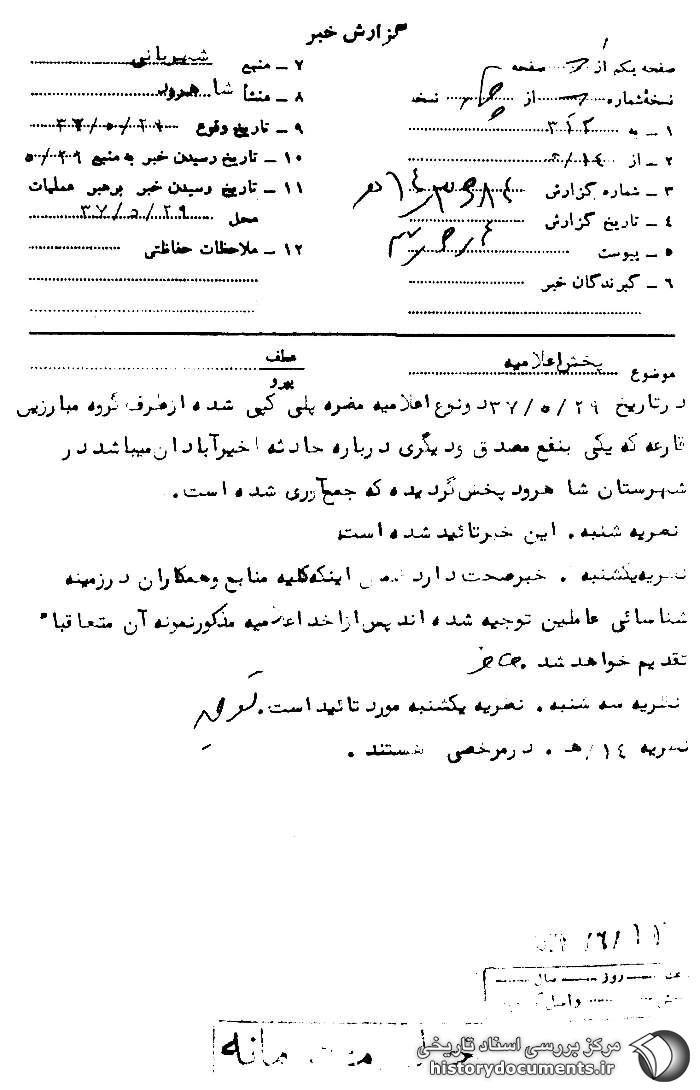 گزارش خبر
صفحه یکم از صفحه
نسخه شماره از نسخه
۱ ـ به ۳۱۲
۲ ـ از ۱۴/ه
۳ ـ شماره گزارش
۴ ـ تاریخ گزارش
۵ ـ پیوست
۶ ـ گیرندگان خبر
۷ ـ منبع شهربانی
۸ ـ منشأ شاهرود
۹ ـ تاریخ وقوع ۳۷/۵/۲۹
۱۰ ـ تاریخ رسیدن خبر به منبع ۵/۲۹
۱۱ ـ تاریخ رسیدن خبر برهبر عملیات
محل ۳۷/۵/۲۹
۱۲ ـ ملاحظات حفاظتی
موضوع پخش اعلامیه
عطف
پیرو
درتاریخ ۳۷/۵/۲۹ دونوع اعلامیه مضره پلی کپی شده ازطرف گروه مبارزین
قارعه که یکی بنفع مصدق ودیگری درباره حادثه اخیرآبادان میباشد در
شهرستان شاهرود پخش گردیده که جمع آوری شده است.
نظریه شنبه. این خبر تائید شده است
نظریه یکشنبه. خبر صحت دارد ضمن اینکه کلیه منابع وهمکاران درزمینه
شناسائی عاملین توجیه شده اند پس از اخذ اعلامیه مذکور نمونه آن متعاقبا"
تقدیم خواهد شد.
نظریه سه شنبه. نظریه یکشنبه مورد تائید است.
نظریه ۱۴/ه. درمرخصی هستند.
۶/۱۱
روز سال
مرکز بررسی اسناد تاریخی
historydocuments.ir